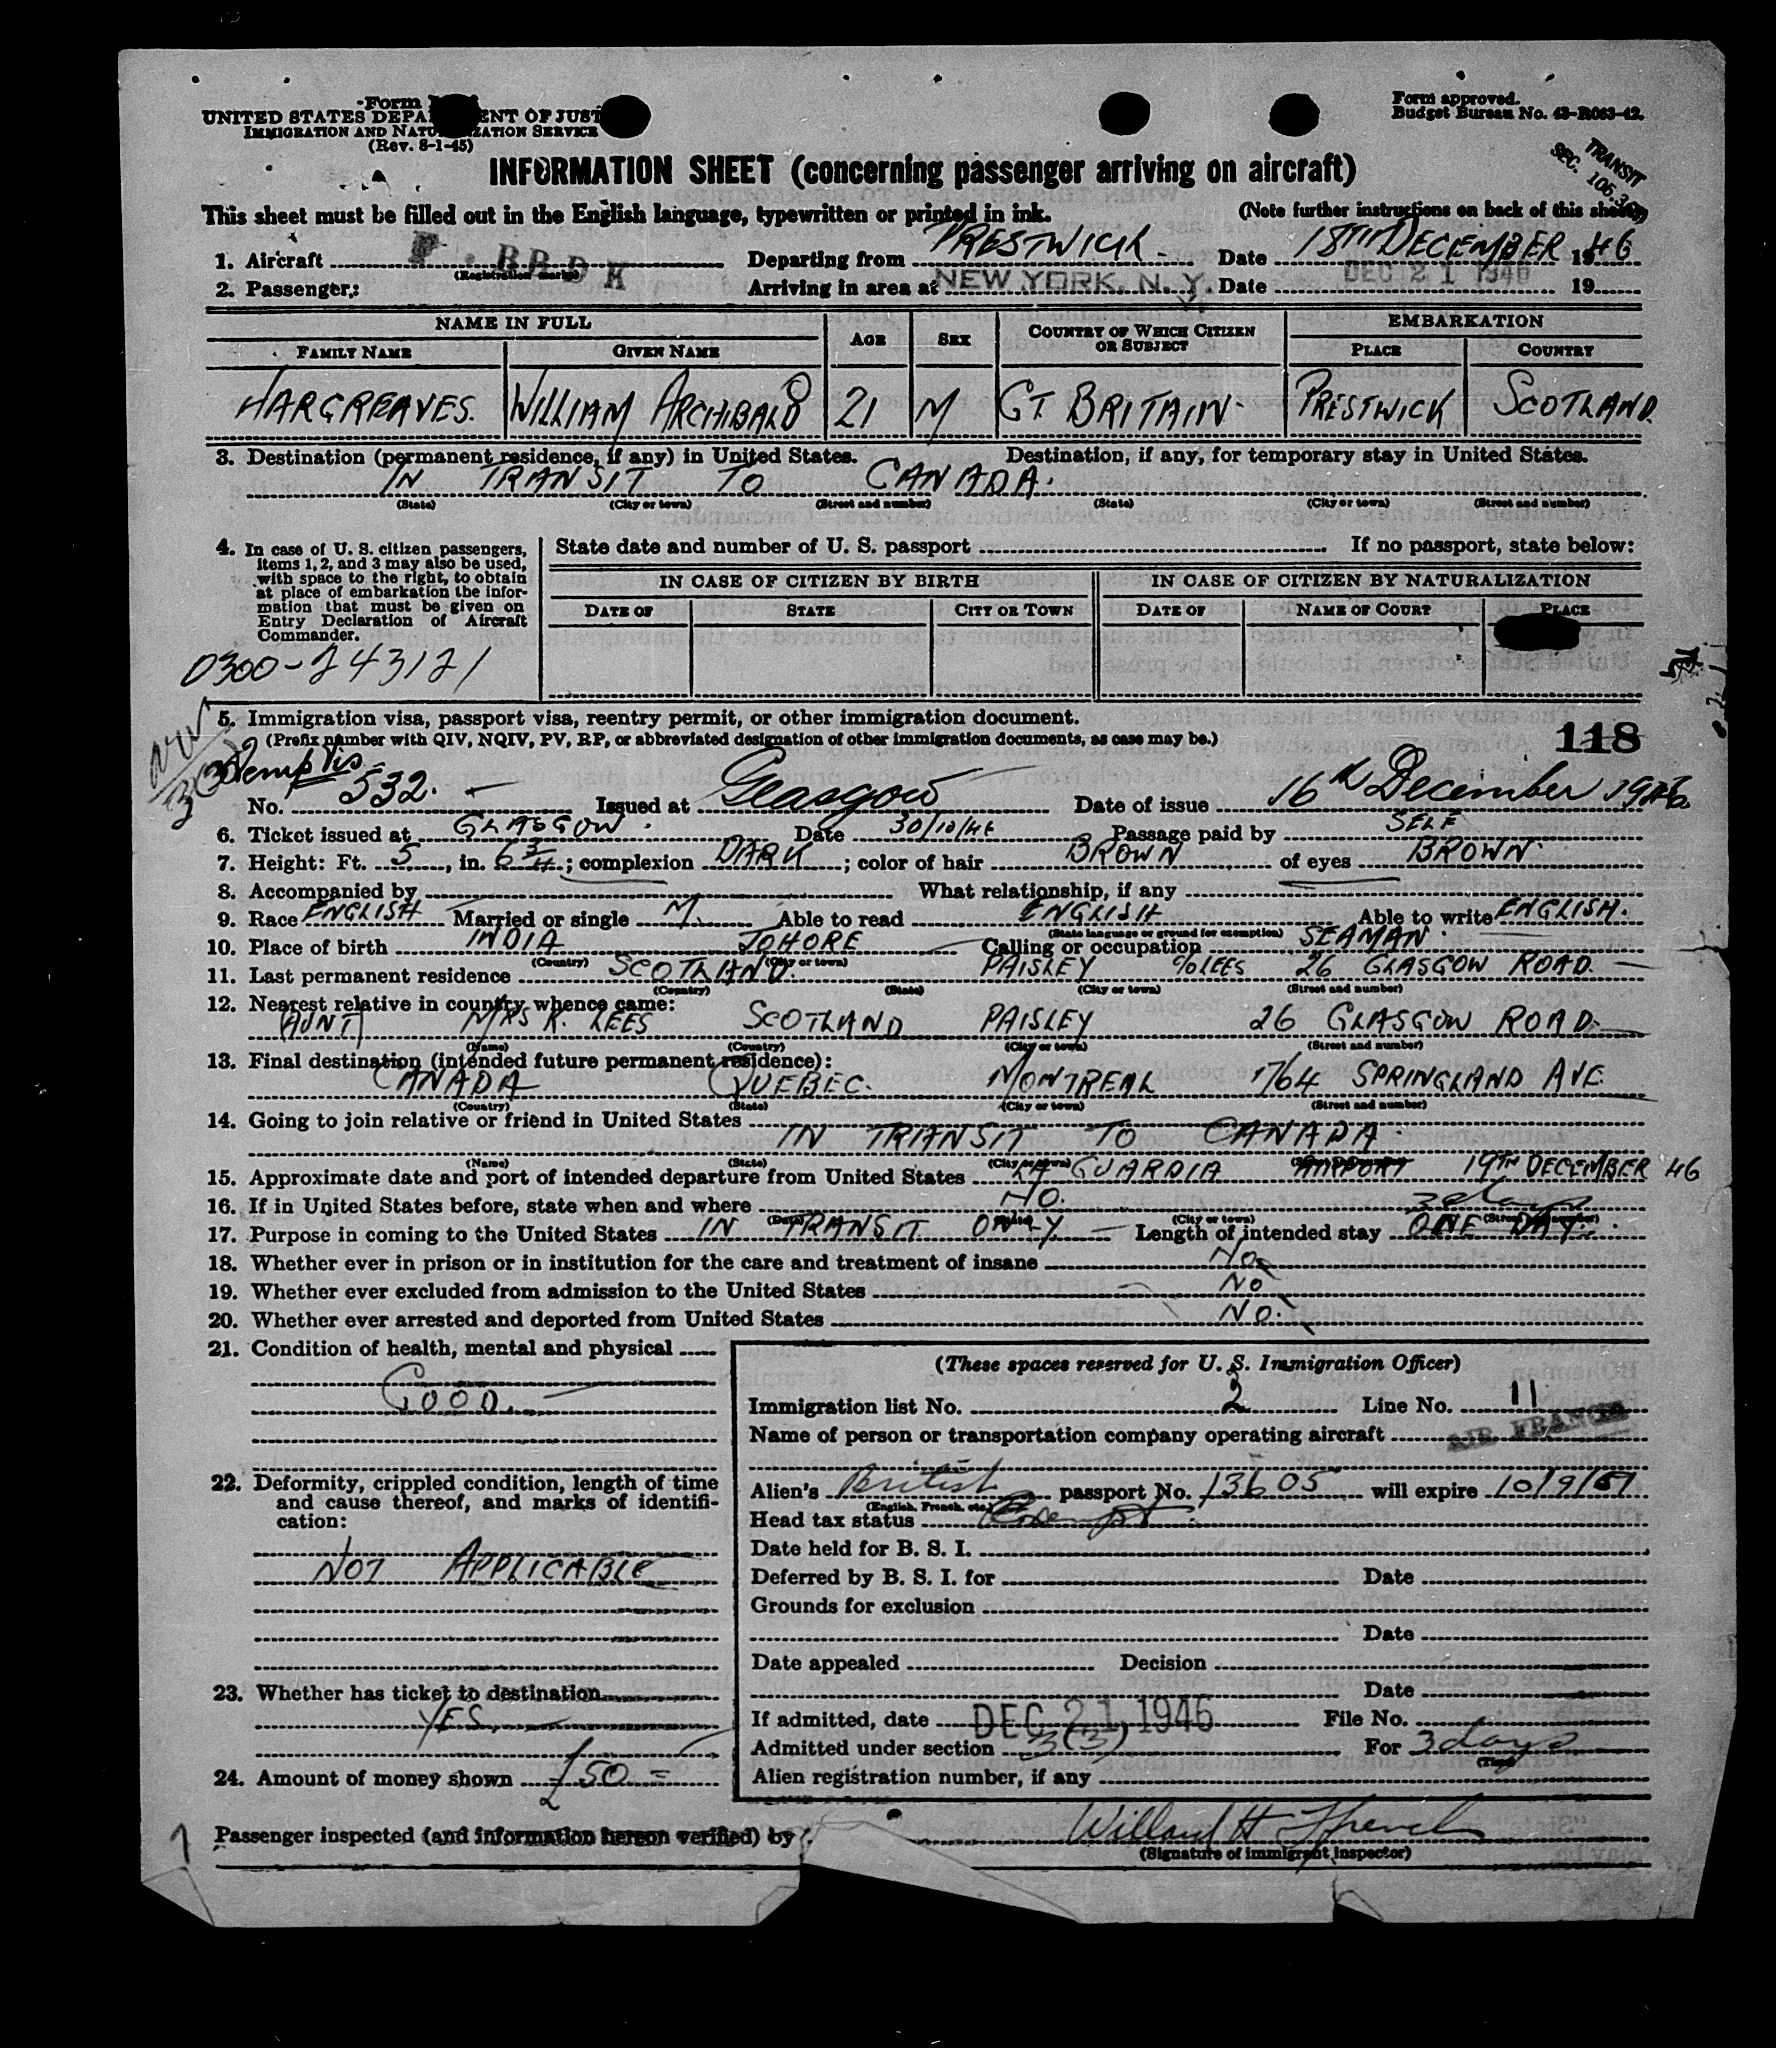 Form
UNITED STATES DEPA ENT OF JUST
IMMIGRATION AND NATU IZATION SERVICE
(Rev. 8-1-45)
Form approved.
Budget Bureau No. 43-R063-42.
TRANSIT
SEC. 106.3
INFORMATION SHEET (concerning passenger arriving on aircraft)
This sheet must be filled out in the English language, typewritten or printed in ink. (Note further instructions on back of this sheet)
1. Aircraft F. BRDK (Registration marks) Departing from PRESTWICK Date 18TH DECEMBER 1946
2. Passenger: Arriving in area at NEW YORK, N. Y. Date DEC 21 1946 19
NAME IN FULL AGE SEX COUNTRY OF WHICH CITIZEN OR SUBJECT EMBARKATION
FAMILY NAME GIVEN NAME PLACE COUNTRY
HARGREAVES. WILLIAM ARCHIBALD 21 M GT BRITAIN PRESTWICK SCOTLAND.
3. Destination (permanent residence, if any) in United States. Destination, if any, for temporary stay in United States.
IN TRANSIT TO CANADA.
(State) (City or town) (Street and number) (State) (City or town) (Street and number)
4. In case of U. S. citizen passengers, items 1, 2, and 3 may also be used, with space to the right, to obtain at place of embarkation the information that must be given on Entry Declaration of Aircraft Commander.
State date and number of U. S. passport If no passport, state below:
IN CASE OF CITIZEN BY BIRTH IN CASE OF CITIZEN BY NATURALIZATION
DATE OF STATE CITY OR TOWN DATE OF NAME OF COURT PLACE
0300-243121
5. Immigration visa, passport visa, reentry permit, or other immigration document.
(Prefix number with QIV, NQIV, PV, RP, or abbreviated designation of other immigration documents, as case may be.)
118
No. 532. Issued at Glasgow Date of issue 16th December 1946
6. Ticket issued at GLASGOW. Date 30/10/46 Passage paid by SELF
7. Height: Ft. 5, in. 6 3/4; complexion DARK; color of hair BROWN of eyes BROWN
8. Accompanied by What relationship, if any
9. Race ENGLISH Married or single M Able to read ENGLISH Able to write ENGLISH.
(State language or ground for exemption)
10. Place of birth INDIA JOHORE Calling or occupation SEAMAN
(Country) (City or town)
11. Last permanent residence SCOTLAND. PAISLEY c/o LEES 26 GLASGOW ROAD.
(Country) (State) (City or town) (Street and number)
12. Nearest relative in country whence came:
(AUNT) MRS K. LEES SCOTLAND PAISLEY 26 GLASGOW ROAD.
(Name) (Country) (City or town) (Street and number)
13. Final destination (intended future permanent residence):
CANADA QUEBEC. MONTREAL 1764 SPRINGLAND AVE.
(Country) (State) (City or town) (Street and number)
14. Going to join relative or friend in United States
IN TRANSIT TO CANADA.
(Name) (State) (City or town)
15. Approximate date and port of intended departure from United States LA GUARDIA AIRPORT 19TH DECEMBER 46
16. If in United States before, state when and where NO.
(Date) (City or town)
3 days
17. Purpose in coming to the United States IN TRANSIT ONLY Length of intended stay ONE DAY.
18. Whether ever in prison or in institution for the care and treatment of insane NO
19. Whether ever excluded from admission to the United States NO
20. Whether ever arrested and deported from United States NO.
21. Condition of health, mental and physical
GOOD.
22. Deformity, crippled condition, length of time and cause thereof, and marks of identification:
NOT APPLICABLE
23. Whether has ticket to destination
YES
24. Amount of money shown £50 =
(These spaces reserved for U. S. Immigration Officer)
Immigration list No. 2 Line No. 11
Name of person or transportation company operating aircraft AIR FRANCE
Alien's British passport No. 13605 will expire 10/9/51
(English, French, etc.)
Head tax status Exempt
Date held for B. S. I.
Deferred by B. S. I. for Date
Grounds for exclusion
Date
Date appealed Decision
Date
If admitted, date DEC 21, 1946 File No.
Admitted under section 3(3) For 3 days
(Time)
Alien registration number, if any
Passenger inspected (and information hereon verified) by Willard H French
(Signature of immigrant inspector)